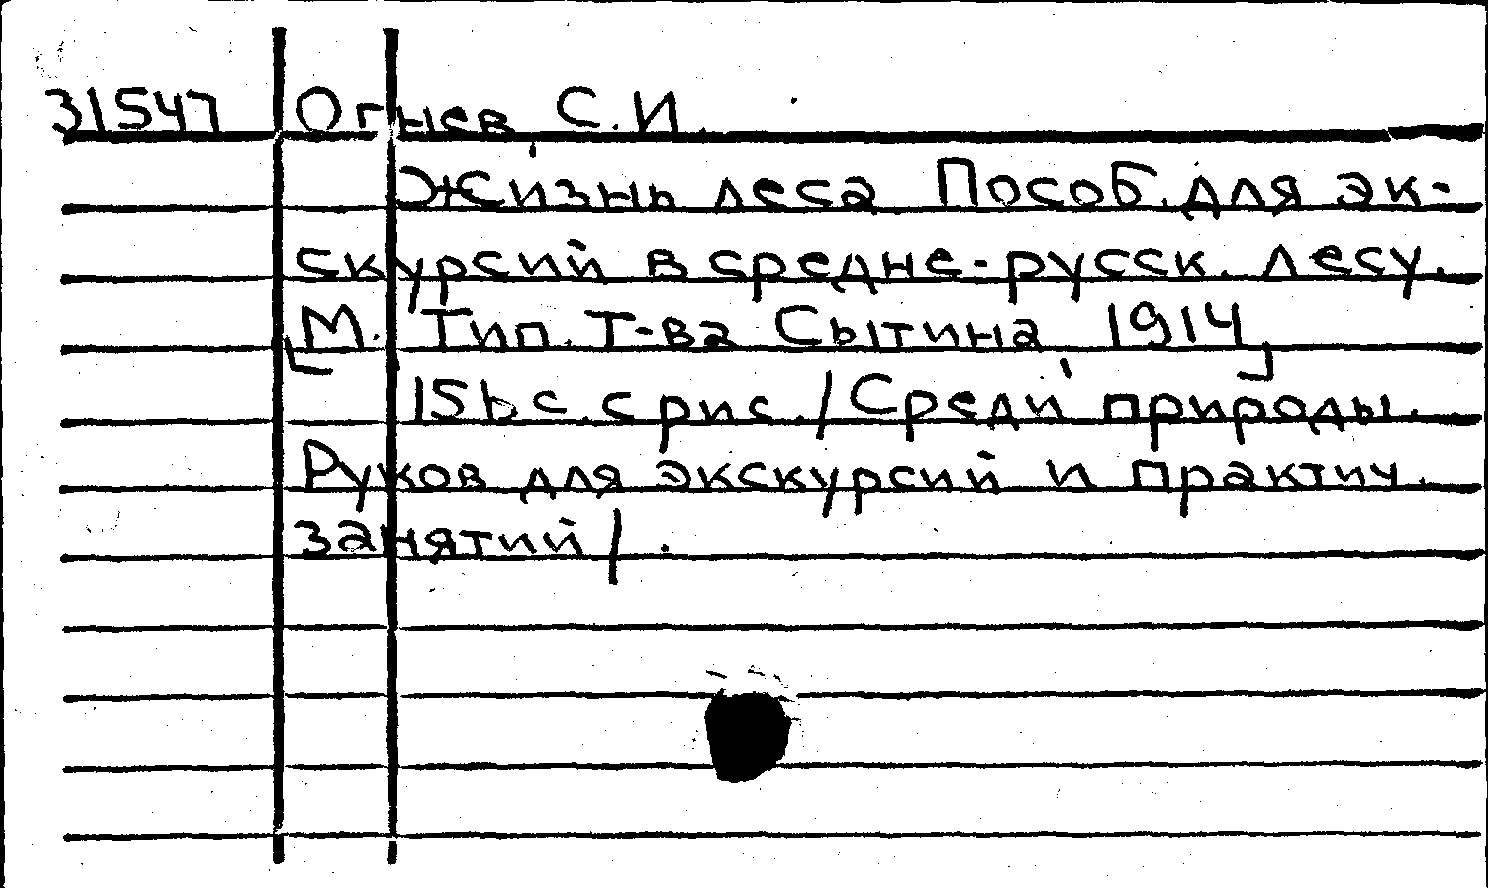 31547 Огнев, С.И.
Жизнь леса Пособ. для эк-
скурсий в средне-русск. лесу.
[М. Тип. Т-ва Сытина, 1914]
156 с. с рис. /Среди природы.
Руков для экскурсий и практич.
занятий/.